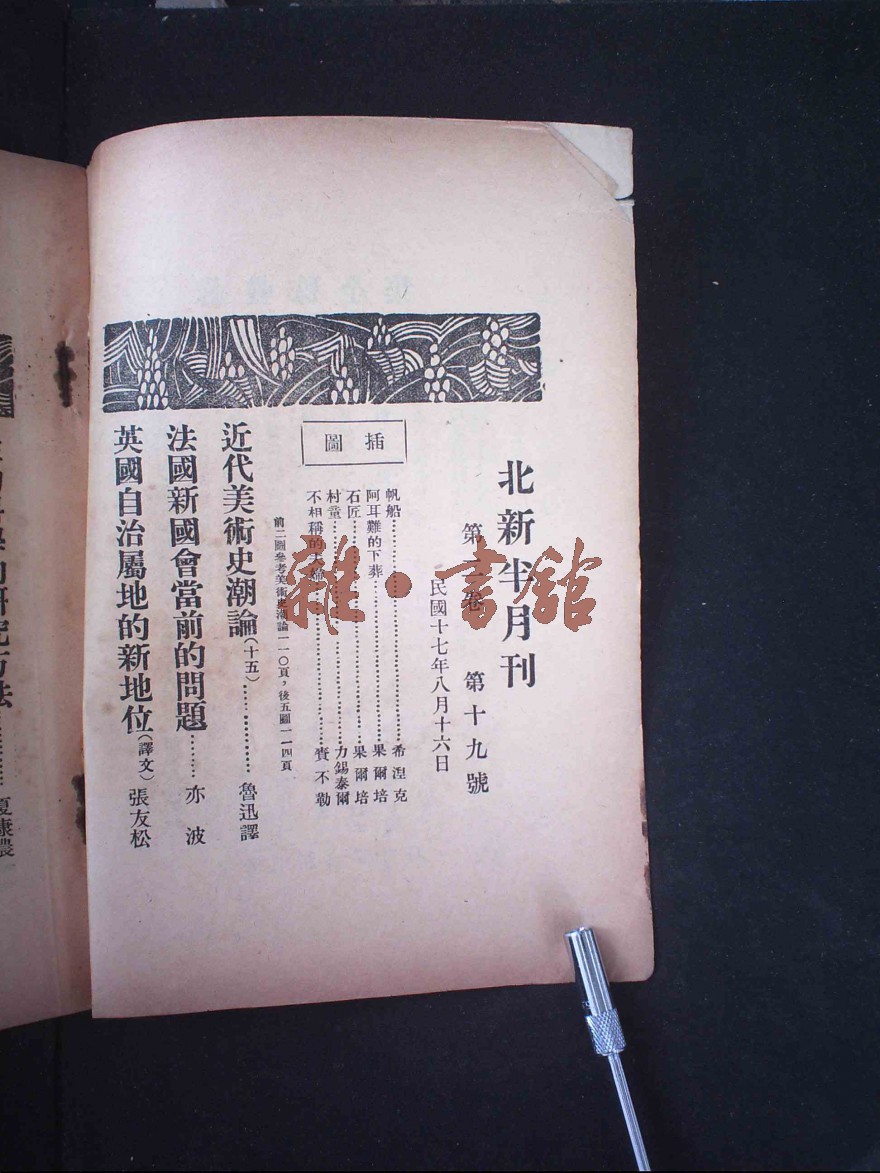 北新半月刊
第二卷 第十九號
民國十七年八月十六日
插圖
帆船…………希涅克
阿耳難的下葬…………果爾培
石匠…………果爾培
村童…………力錫泰爾
不相稱的夫婦…………賚不勒
前二圖參考美術史潮論一一〇頁,後五圖一一四頁
近代美術史潮論(十五)…………魯迅譯
法國新國會當前的問題……亦波
英國自治屬地的新地位(譯文)張友松
研究方法…………夏康農
雜·書館